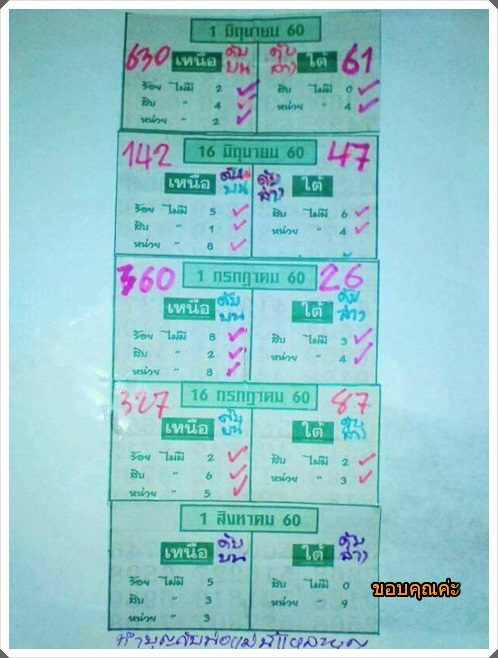 1 มิถุนายน 60
630 เหนือ ดับบน ดับล่าง ใต้ 61
ร้อย ไม่มี 2 ✓ สิบ ไม่มี 0 ✓
สิบ " 4 ✓ หน่วย " 4 ✓
หน่วย " 2 ✓
142 16 มิถุนายน 60 47
เหนือ ดับบน ดับล่าง ใต้
ร้อย ไม่มี 5 ✓ สิบ ไม่มี 6 ✓
สิบ " 1 ✓ หน่วย " 4 ✓
หน่วย " 8 ✓
360 1 กรกฎาคม 60 26
เหนือ ดับบน ใต้ ดับล่าง
ร้อย ไม่มี 8 ✓ สิบ ไม่มี 3 ✓
สิบ " 2 ✓ หน่วย " 4 ✓
หน่วย " 8 ✓
327 16 กรกฎาคม 60 87
เหนือ ดับบน ใต้ ดับล่าง
ร้อย ไม่มี 2 ✓ สิบ ไม่มี 2 ✓
สิบ " 6 ✓ หน่วย " 3 ✓
หน่วย " 5 ✓
1 สิงหาคม 60
เหนือ ดับบน ใต้ ดับล่าง
ร้อย ไม่มี 5 สิบ ไม่มี 0
สิบ " 3 หน่วย " 9
หน่วย " 3
ขอบคุณค่ะ
ทำบุญกับพ่อแม่